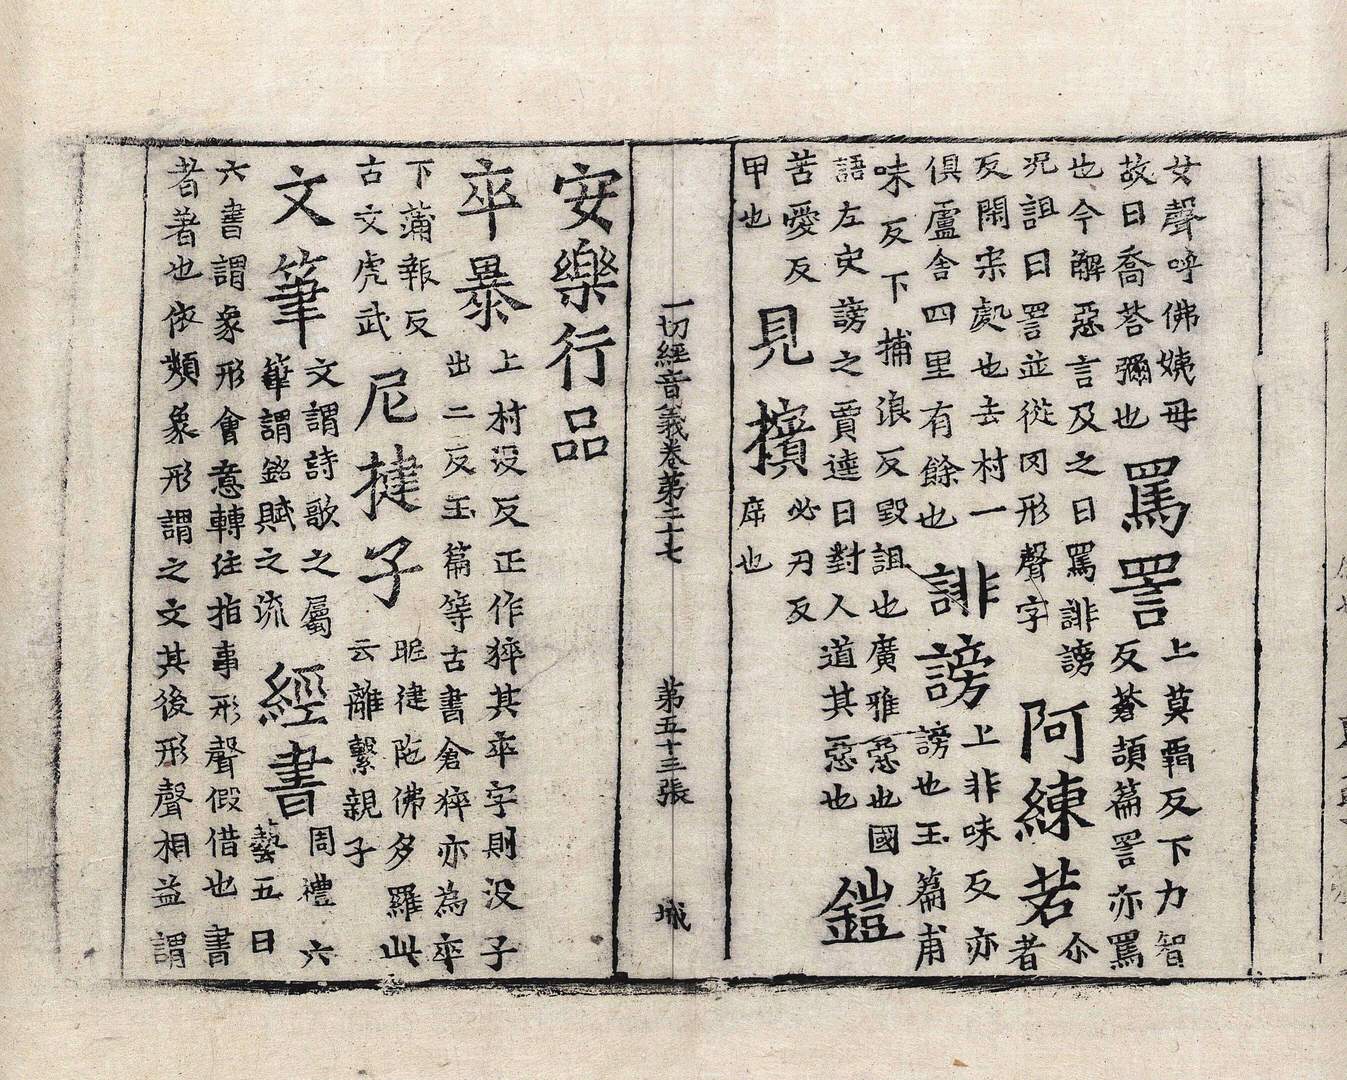 女聲呼佛姨母
故曰喬荅彌也
罵詈
上莫覇反下力智
反蒼頡篇詈亦罵
也今解惡言及之曰罵誹謗
况詛曰詈並從冈形聲字
阿練若
尒
者
反閑宋處也去村一
俱盧舍四里有餘也
誹謗
上非味反亦
謗也玉篇甫
味反下補浪反毀詛也廣雅惡也國
語左史謗之賈逵曰對人道其惡也
鎧
苦愛反
甲也
見擯
必刃反
席也
一切經音義卷第二十七 第五十三張 城
安樂行品
卒暴
上村没反正作猝其卒字則没子
出二反玉篇等古書倉猝亦為卒
下蒲報反
古文虎武
尼揵子
昵建陁佛多羅此
云離繫親子
文筆
文謂詩歌之屬
筆謂銘賦之流
經書
周禮六
藝五曰
六書謂象形會意轉注指事形聲假借也書
者著也依類象形謂之文其後形聲相益謂